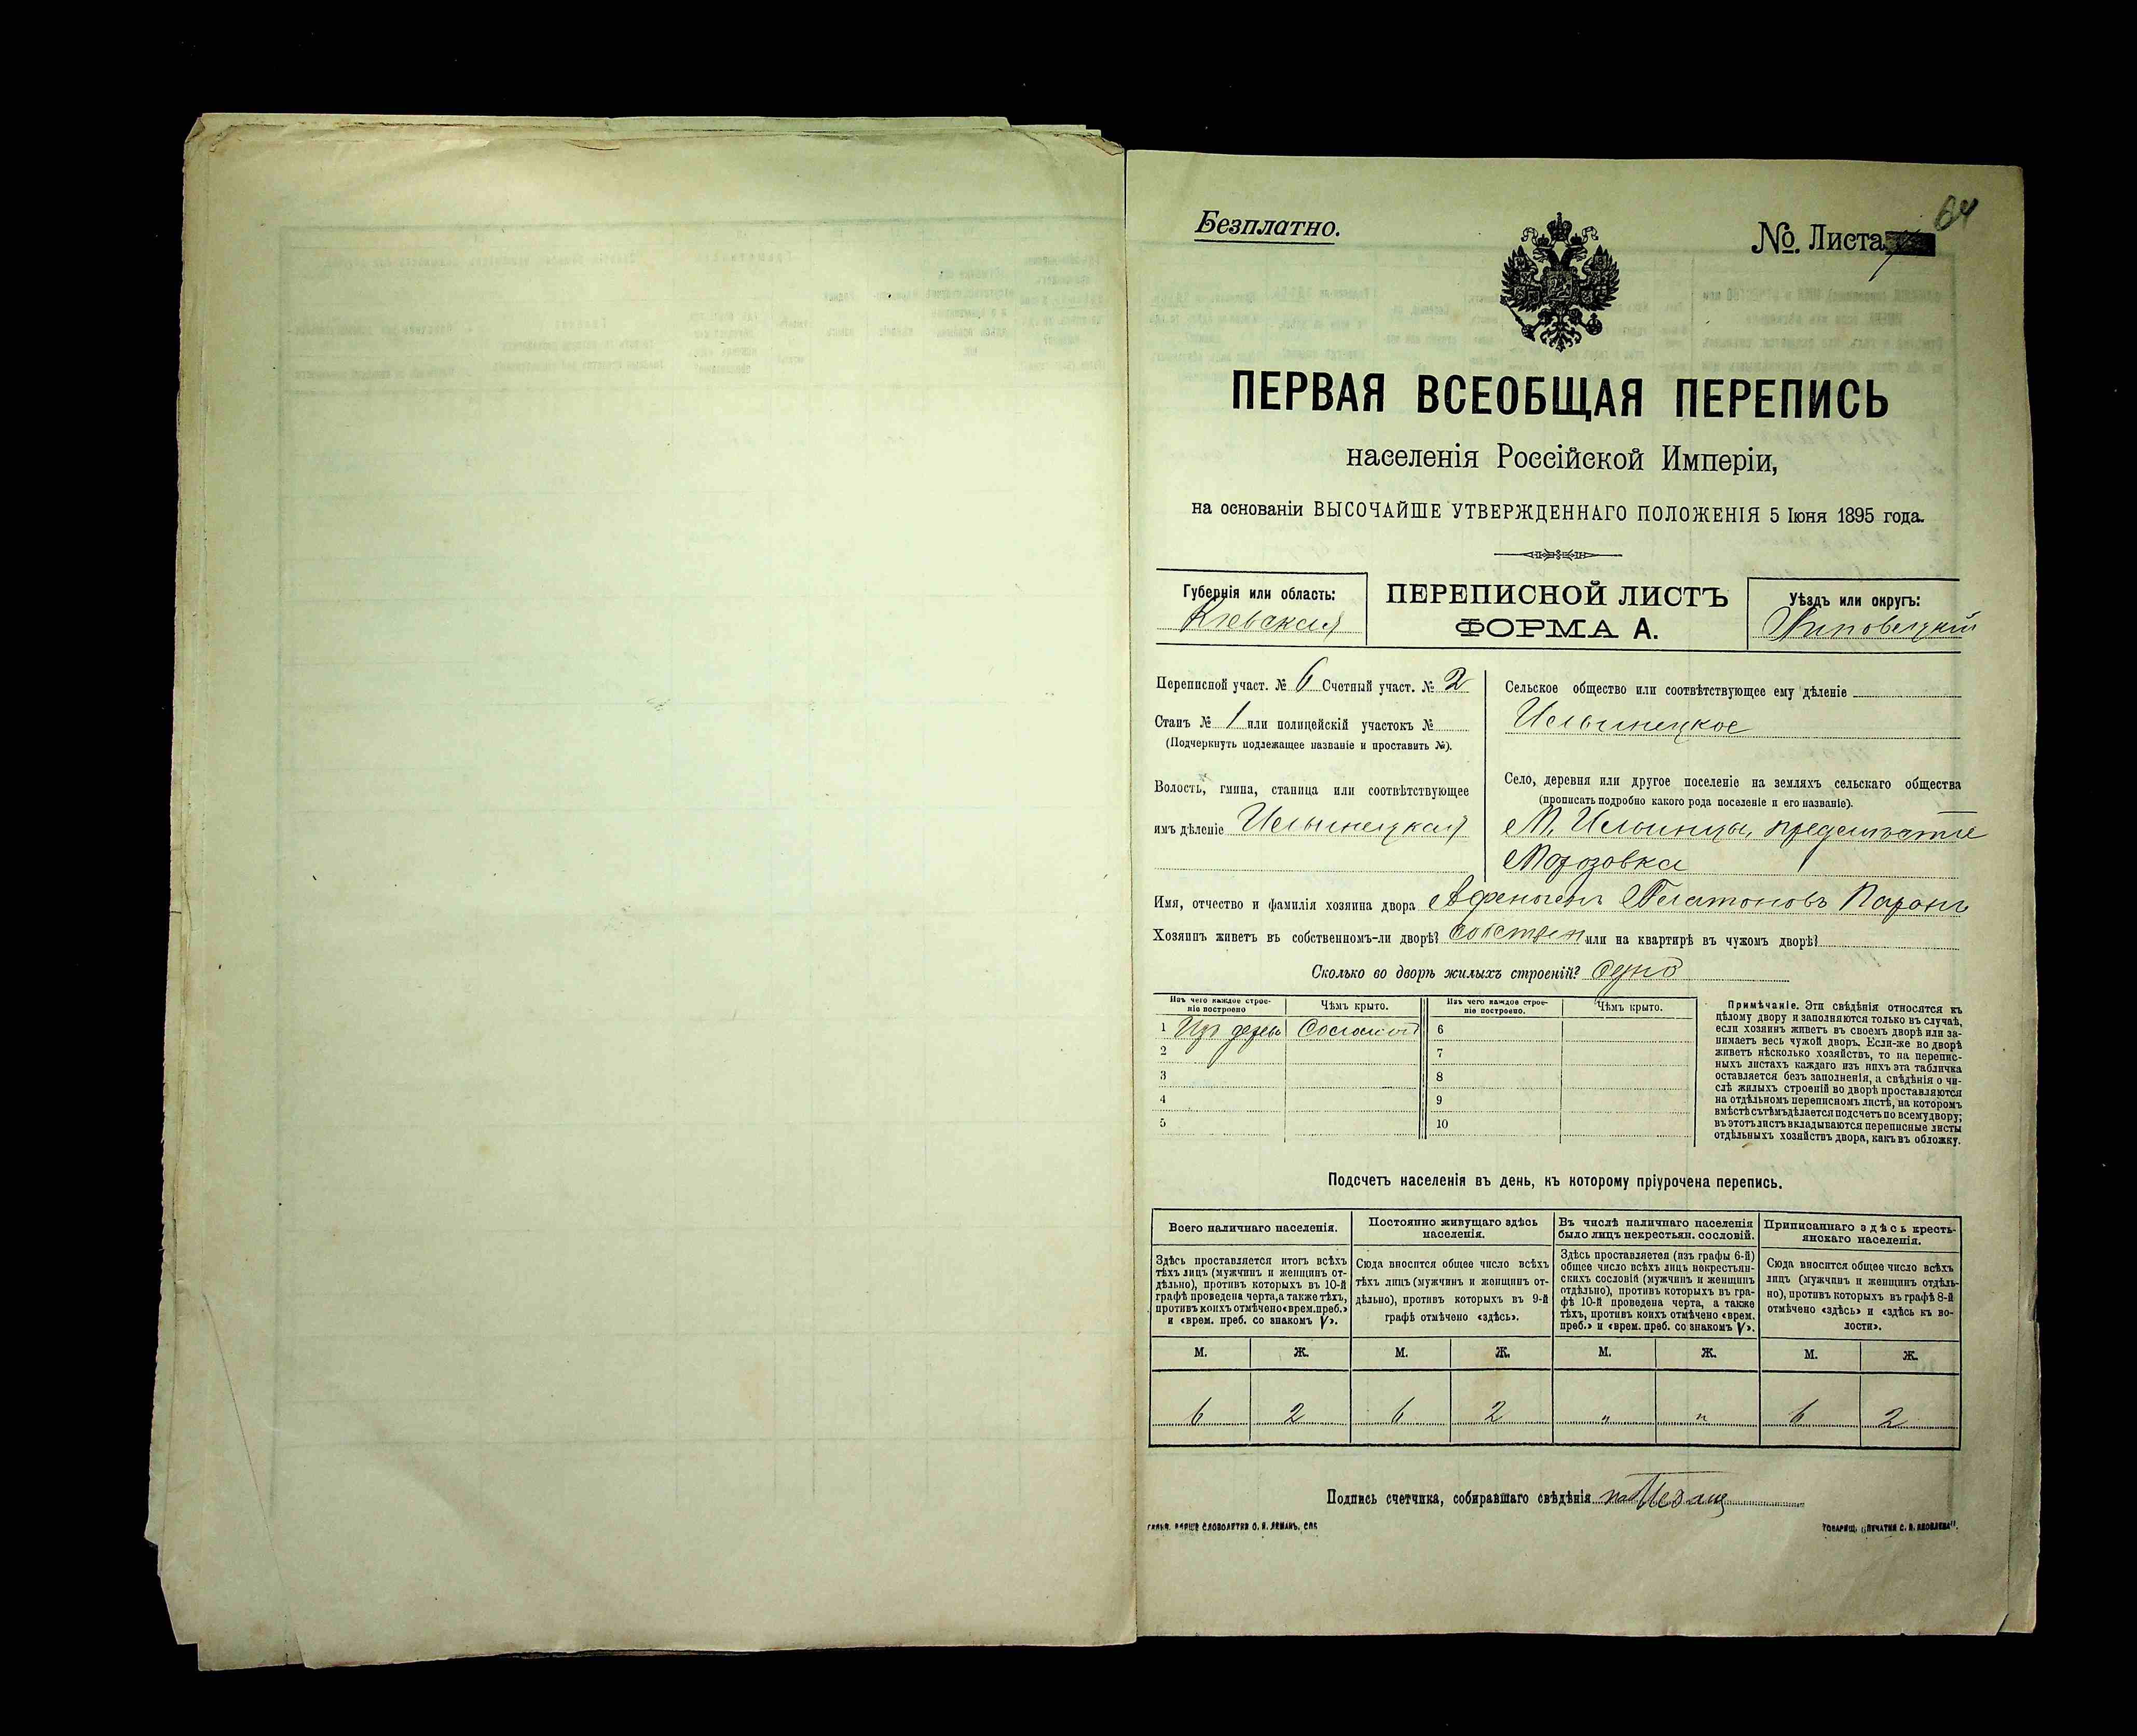 Безплатно.
№ Листа
64
ПЕРВАЯ ВСЕОБЩАЯ ПЕРЕПИСЬ
населенія Россійской Имперіи,
на основаніи ВЫСОЧАЙШЕ УТВЕРЖДЕННАГО ПОЛОЖЕНІЯ 5 Іюня 1895 года.
Губернія или область:
Кіевская
ПЕРЕПИСНОЙ ЛИСТЪ
ФОРМА А.
Уѣздъ или округъ:
Липовецкій
Переписной участ. № 6 Счетный участ. № 2
Станъ № 1 или полицейскій участокъ №
(Подчеркнуть подлежащее названіе и проставить №).
Волость, гмина, станица или соотвѣтствующее
имъ дѣленіе Ильинецкая
Сельское общество или соотвѣтствующее ему дѣленіе
Ильинецкое
Село, деревня или другое поселеніе на земляхъ сельскаго общества
(прописать подробно какого рода поселеніе и его названіе).
М. Ильинцы, предмѣстіе
Морозовка
Имя, отчество и фамилія хозяина двора Платоновъ
Хозяинъ живетъ въ собственномъ-ли дворѣ? собствен или на квартирѣ въ чужомъ дворѣ?
Сколько во дворѣ жилыхъ строеній? одно
Изъ чего каждое строе-
ніе построено
Чѣмъ крыто.
Изъ чего каждое строе-
ніе построено.
Чѣмъ крыто.
1 Изъ дерев Соломой 6
2 7
3 8
4 9
5 10
Примѣчаніе. Эти свѣдѣнія относятся къ
цѣлому двору и заполняются только въ случаѣ,
если хозяинъ живетъ въ своемъ дворѣ или за-
нимаетъ весь чужой дворъ. Если-же во дворѣ
живетъ нѣсколько хозяйствъ, то на перепис-
ныхъ листахъ каждаго изъ нихъ эта табличка
оставляется безъ заполненія, а свѣдѣнія о чи-
слѣ жилыхъ строеній во дворѣ проставляются
на отдѣльномъ переписномъ листѣ, на которомъ
вмѣстѣ съ тѣмъ дѣлается подсчетъ по всему двору;
въ этотъ листъ вкладываются переписные листы
отдѣльныхъ хозяйствъ двора, какъ въ обложку.
Подсчетъ населенія въ день, къ которому пріурочена перепись.
Всего наличнаго населенія.
Здѣсь проставляется итогъ всѣхъ
тѣхъ лицъ (мужчинъ и женщинъ от-
дѣльно), противъ которыхъ въ 10-й
графѣ проведена черта, а также тѣхъ,
противъ коихъ отмѣчено «врем. преб.»
и «врем. преб. со знакомъ V».
Постоянно живущаго здѣсь
населенія.
Сюда вносится общее число всѣхъ
тѣхъ лицъ (мужчинъ и женщинъ от-
дѣльно), противъ которыхъ въ 9-й
графѣ отмѣчено «здѣсь».
Въ числѣ наличнаго населенія
было лицъ некрестьян. сословій.
Здѣсь проставляется (изъ графы 6-й)
общее число всѣхъ лицъ некрестьян-
скихъ сословій (мужчинъ и женщинъ
отдѣльно), противъ которыхъ въ гра-
фѣ 10-й проведена черта, а также
тѣхъ, противъ коихъ отмѣчено «врем.
преб.» и «врем. преб. со знакомъ V».
Приписаннаго здѣсь кресть-
янскаго населенія.
Сюда вносится общее число всѣхъ
лицъ (мужчинъ и женщинъ отдѣль-
но), противъ которыхъ въ графѣ 8-й
отмѣчено «здѣсь» и «здѣсь къ во-
лости».
М. Ж. М. Ж. М. Ж. М. Ж.
6 2 6 2 " " 6 2
Подпись счетчика, собиравшаго свѣдѣнія
СЛОВОЛИТНЯ О. И. ЛЕМАНЪ, СПБ
ТОВАРИЩ. „ПЕЧАТНЯ С. П. ЯКОВЛЕВА“.